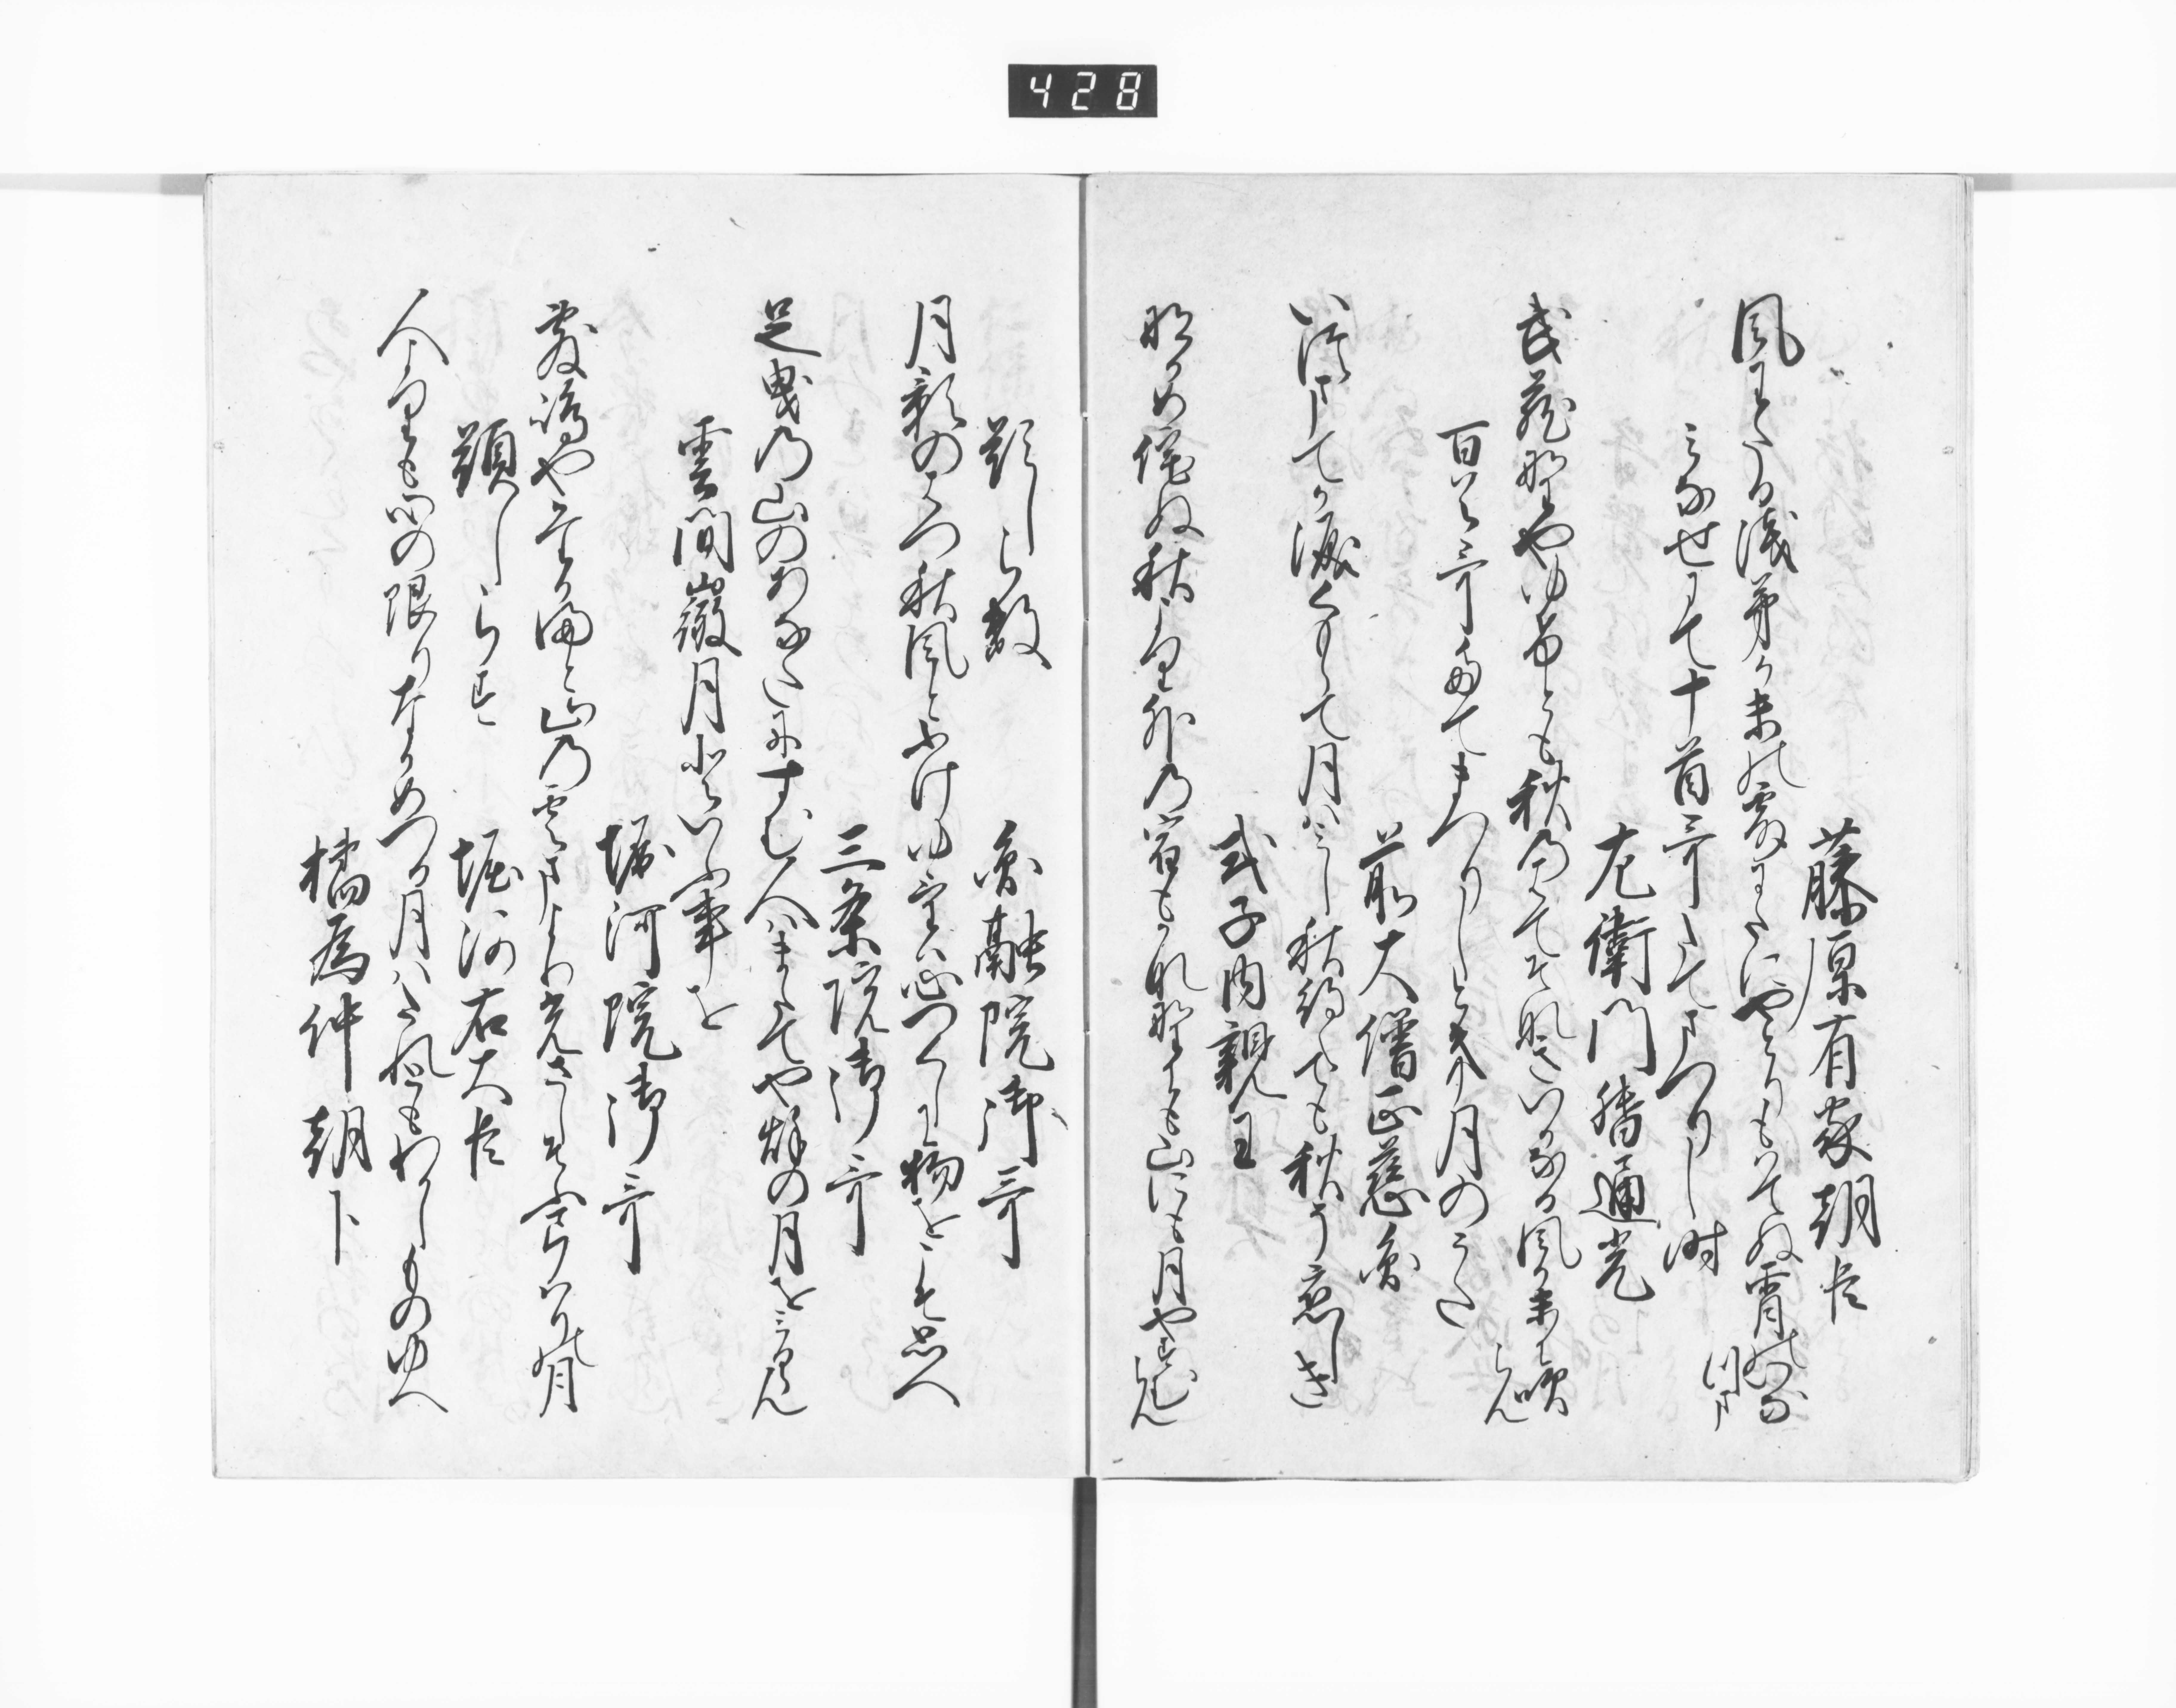 428
藤原有家朝臣
風わたる浅茅か末の露にたにやとりもはてぬ宵のいなつま
みなせにて十首哥たてまつりし時
左衛門督通光
武蔵野やゆけとも秋のはてそなきいかなる風か末に吹らん
百首哥たてまつりしとき月のうた
前大僧正慈圓
いつまてか涙くもらて月はみし秋待えても秋そ恋しき
式子内親王
なかめ侘ぬ秋より外の宿もかな野にも山にも月やすむらん
題しらす
圓融院御哥
月影のはつ秋風とふけゆけは心つくしに物をこそ思へ
三条院御哥
足曳の山のあなたにすむ人はまたてや秋の月をみるらん
雲間微月といふ事を
堀河院御哥
敷嶋や高円山の雲まより光さしそふ弓はりの月
題しらす
堀河右大臣
人よりも心の限りなかめつる月はたれともわかしものゆへ
橘為仲朝臣